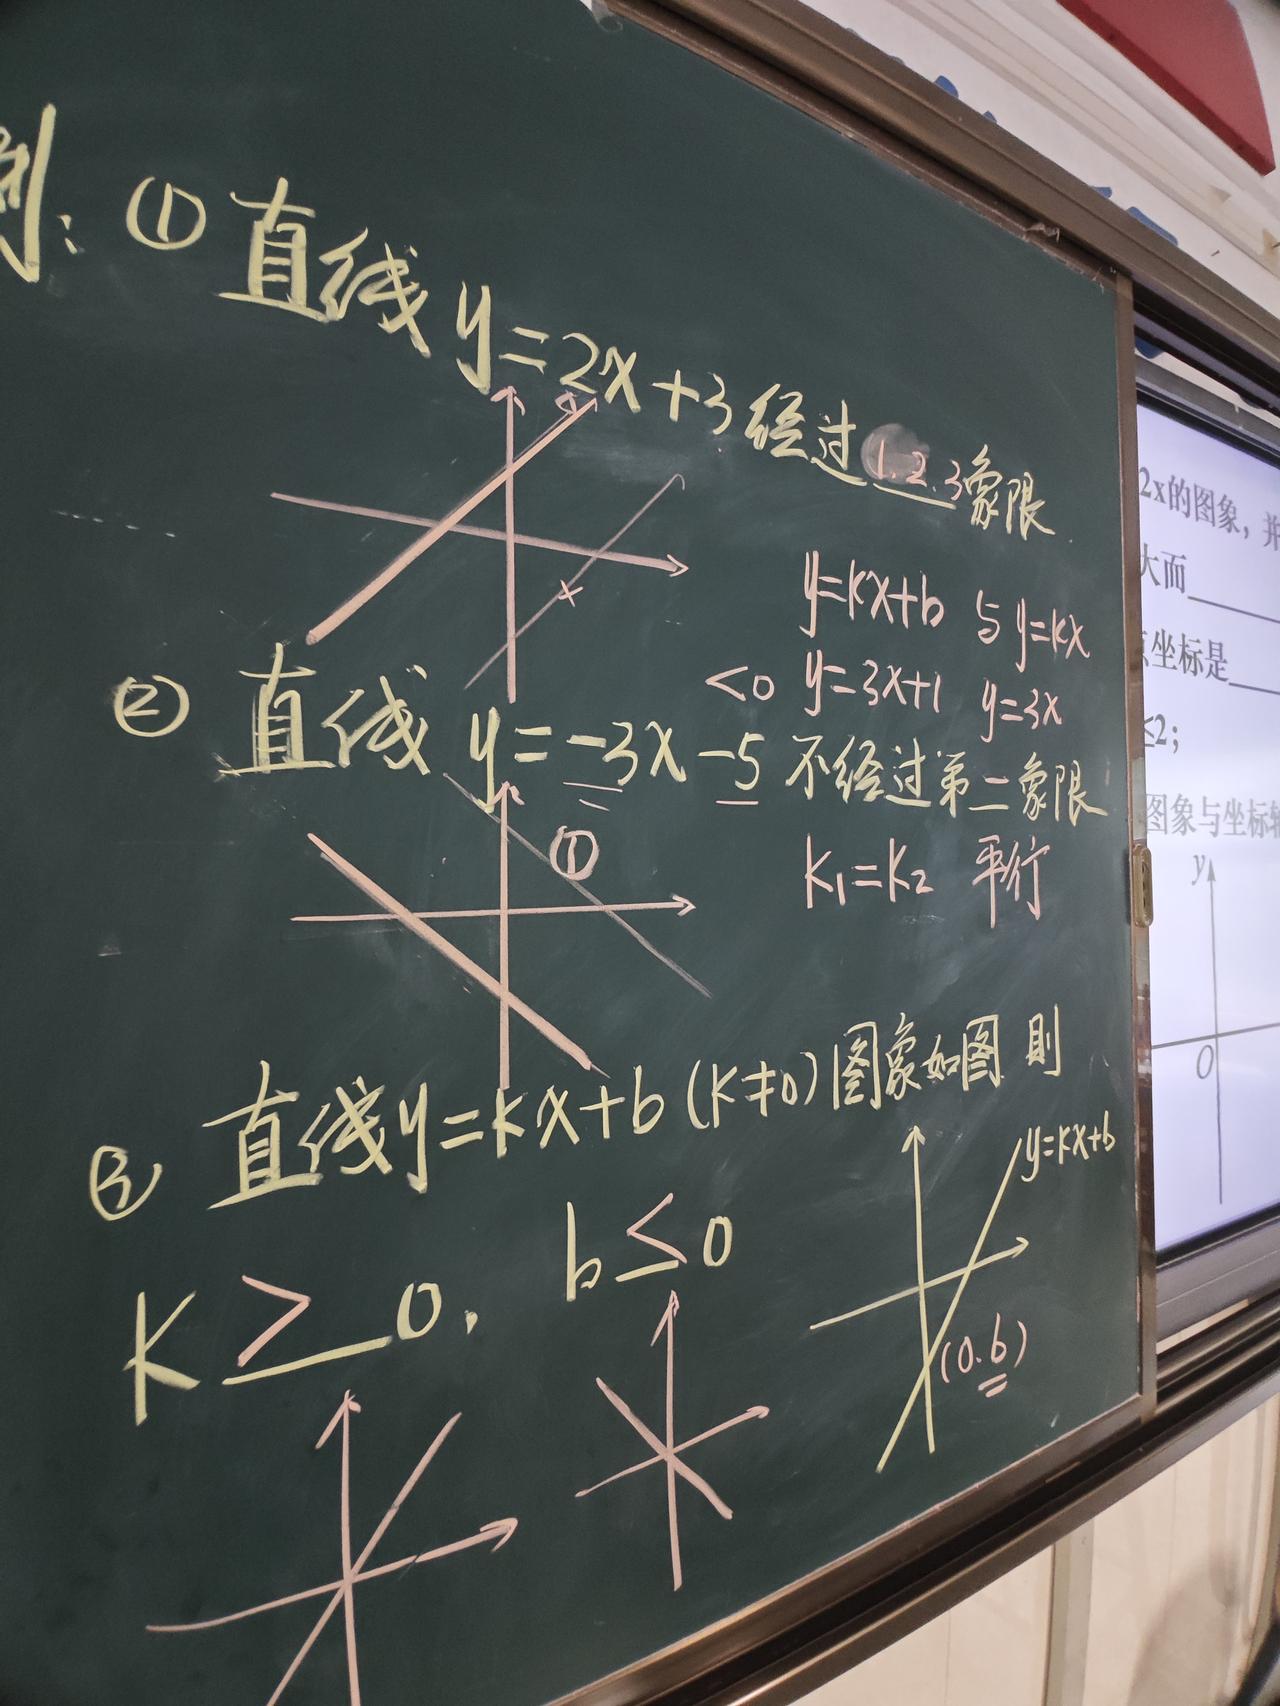 例: ① 直线 y=2x+3 经过 1.2.3 象限
y=kx+b 与 y=kx
<0 y=3x+1 y=3x
② 直线 y=-3x-5 不经过第二象限
①
K₁=K₂ 平行
③ 直线 y=kx+b (K≠0) 图象如图 则
y=kx+b
K > 0, b < 0
(0.b)
2x的图象,并
大而
点坐标是
≤2;
图象与坐标轴
y
O